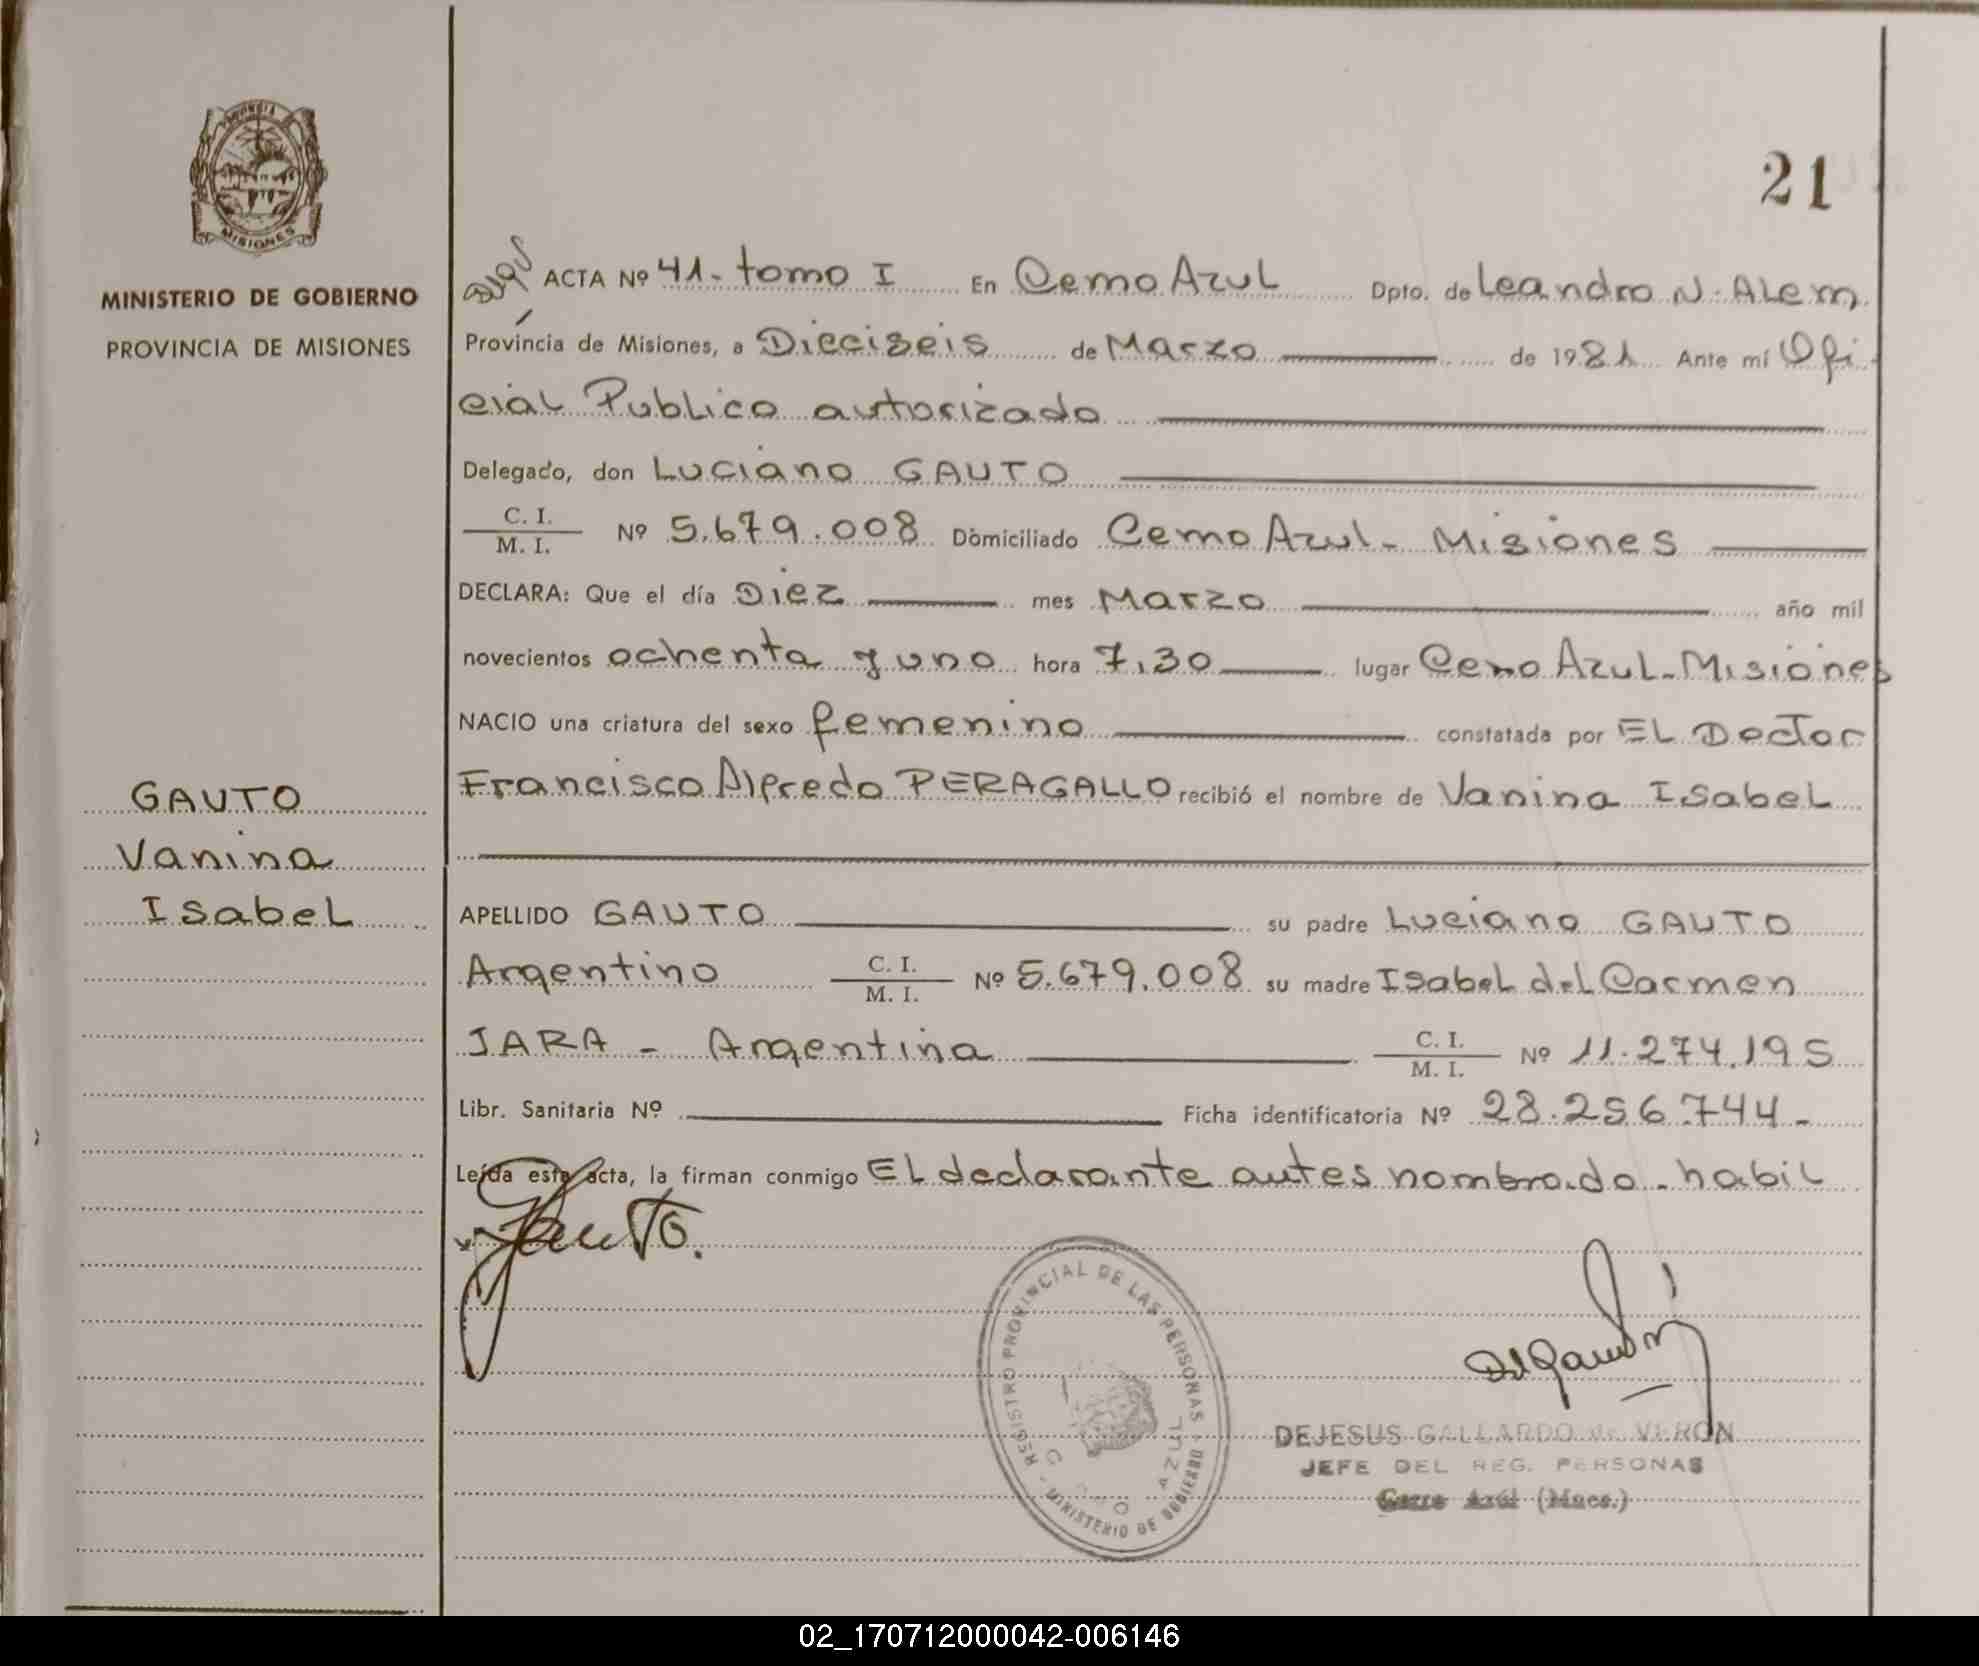 PROVINCIA
MISIONES
MINISTERIO DE GOBIERNO
PROVINCIA DE MISIONES
GAUTO
Vanina
Isabel
21
ACTA Nº 41- tomo I En Cerro Azul Dpto. de Leandro N. Alem
Provincia de Misiones, a Dieciseis de Marzo de 1981 Ante mí Ofi
cial Publico autorizado
Delegado, don Luciano GAUTO
C. I.
M. I. Nº 5.679.008 Domiciliado Cerro Azul- Misiones
DECLARA: Que el día Diez mes Marzo año mil
novecientos ochenta y uno hora 7,30 lugar Cerro Azul-Misiones
NACIO una criatura del sexo femenino constatada por El Doctor
Francisco Alfredo PERAGALLO recibió el nombre de Vanina Isabel
APELLIDO GAUTO su padre Luciano GAUTO
Argentino C. I.
M. I. Nº 5.679.008 su madre Isabel del Carmen
JARA - Argentina C. I.
M. I. Nº 11.274.195
Libr. Sanitaria Nº Ficha identificatoria Nº 28.256.744-
Leída esta acta, la firman conmigo El declarante antes nombrado - habil
Gauto.
REGISTRO PROVINCIAL DE LAS PERSONAS - MINISTERIO DE GOBIERNO
AZUL
DEJESUS GALLARDO de VERON
JEFE DEL REG. PERSONAS
Cerro Azul (Mnes.)
02_170712000042-006146